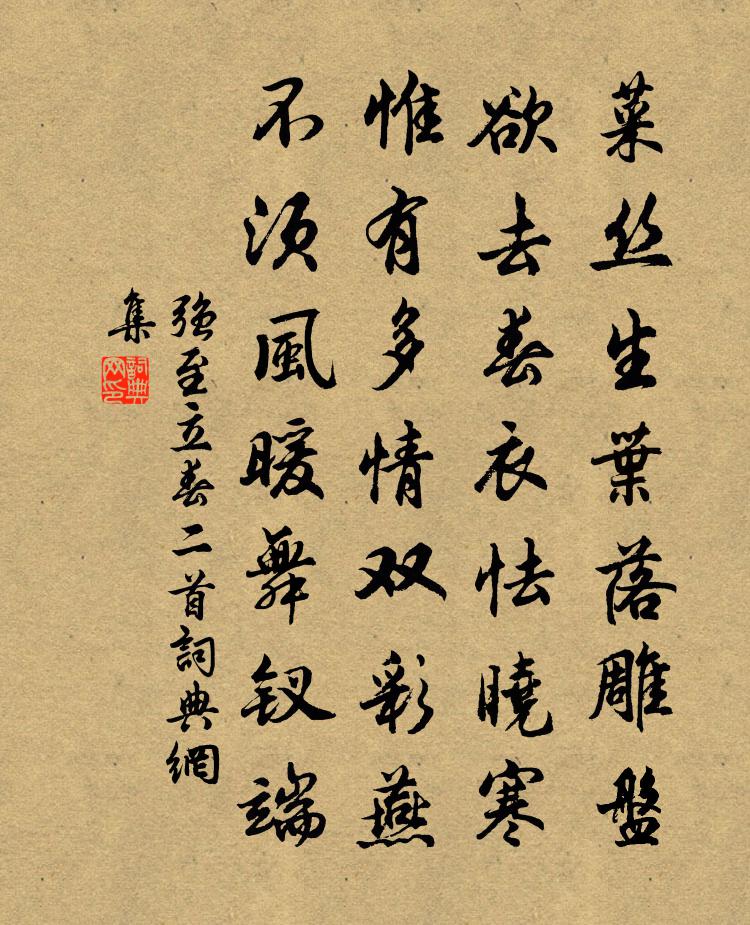 菜丝生葉落雕盤
欲去春衣怯曉寒
惟有多情双彩燕
不须風暖舞钗端
强至立春二首詞典網
集
詞典
网印